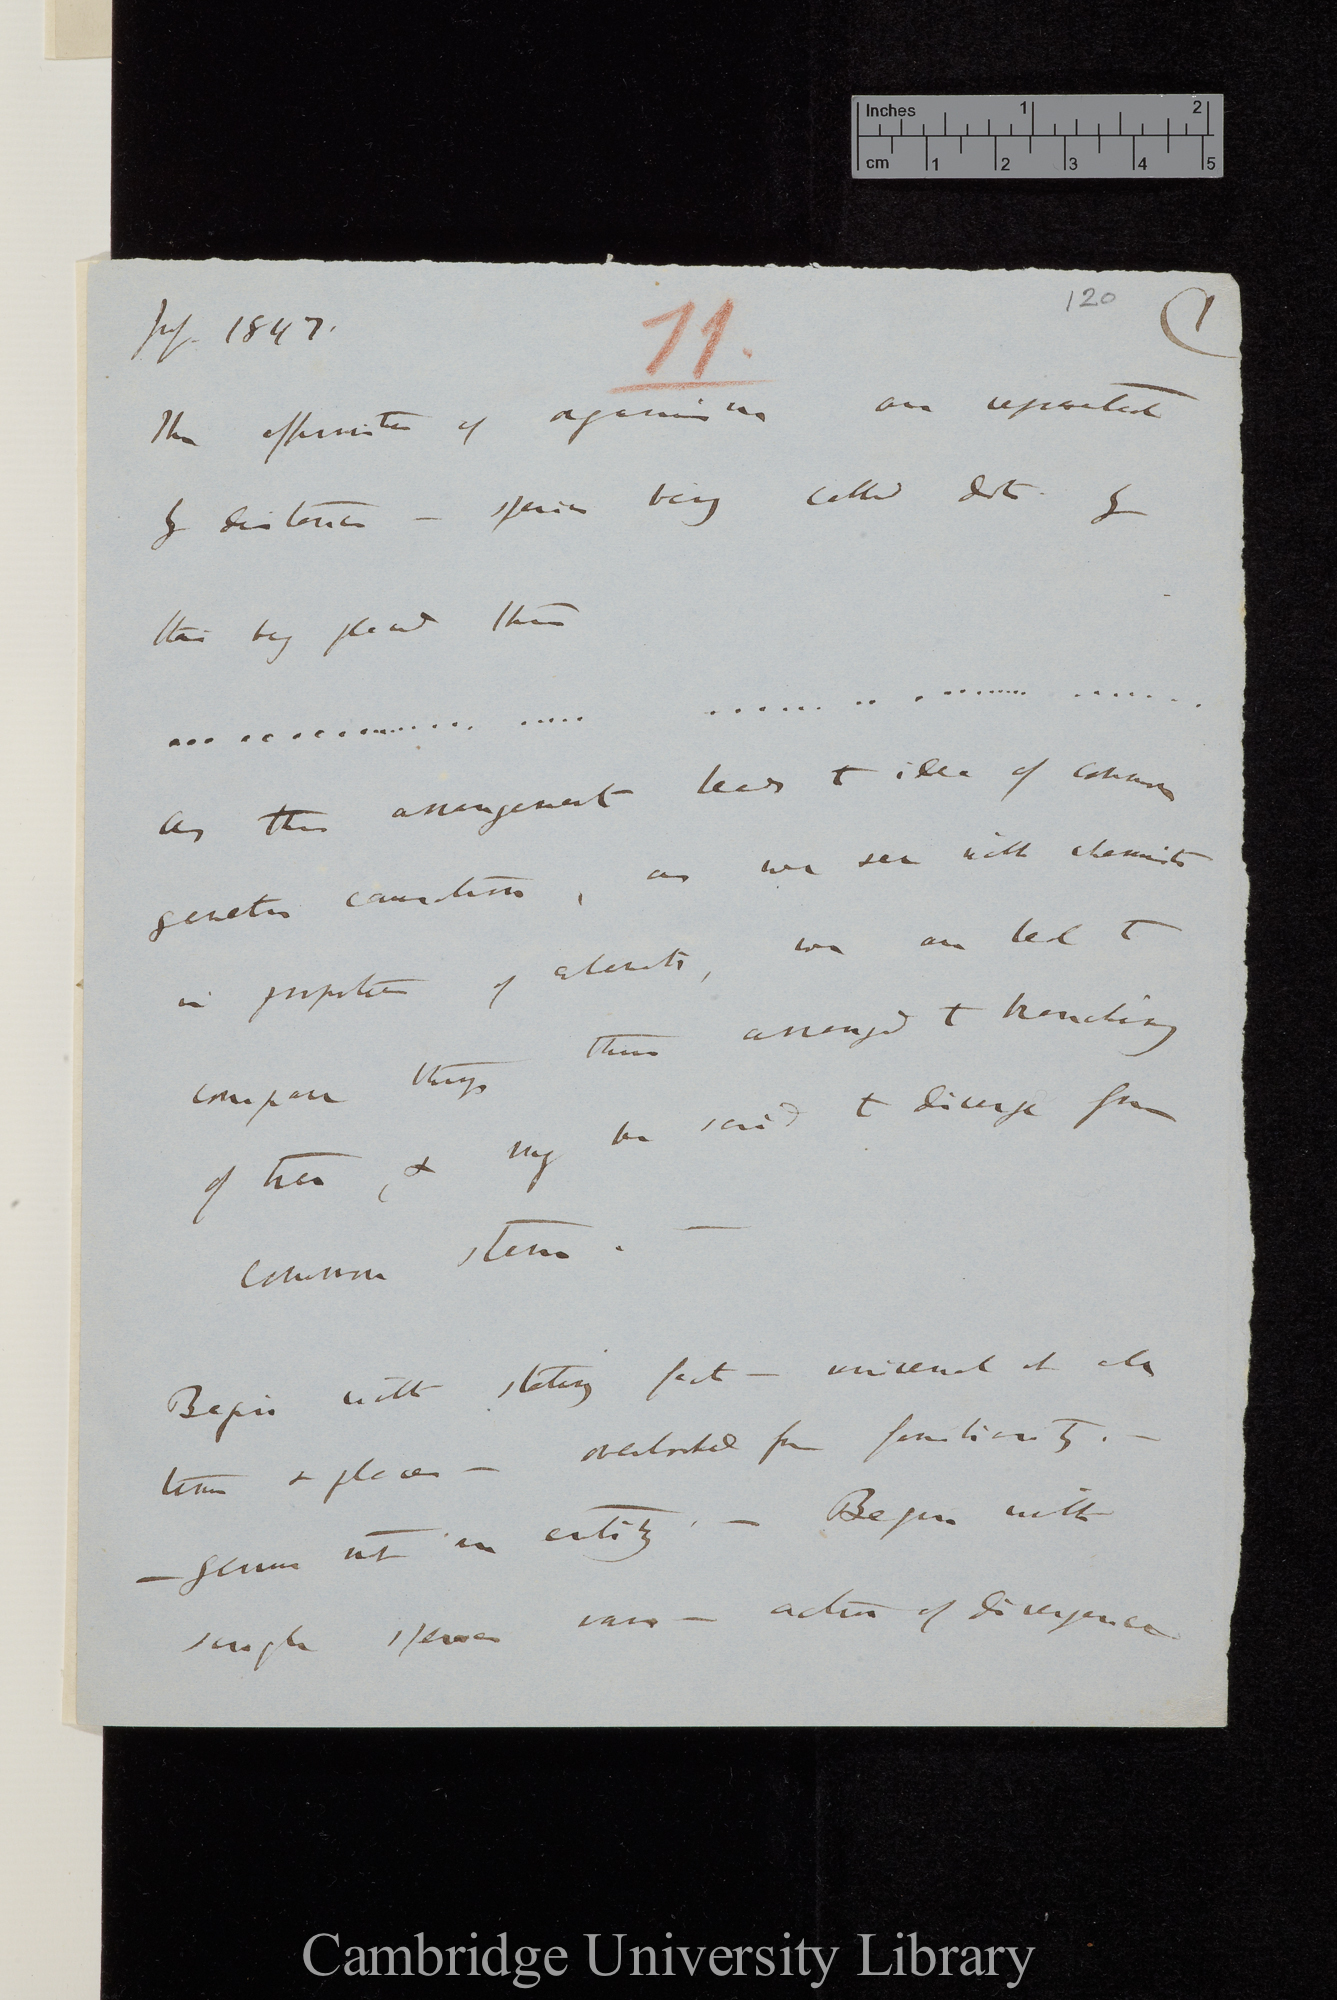 Inches 1 2
cm 1 2 3 4 5
120
July. 1847.
11.
The affinities of organisms are represented
by distances — species being called dots by
their being placed thus
As this arrangement leads to idea of common
genetic connection, as we see with chemists
in properties of elements, we are led to
compare things thus arranged to branching
of tree, & may be said to diverge from
common stem. —
Begin with stating fact — universal at all
times & places — overlooked from familiarity. —
— genus not an entity. — Begin with
single species vary — action of divergence
Cambridge University Library